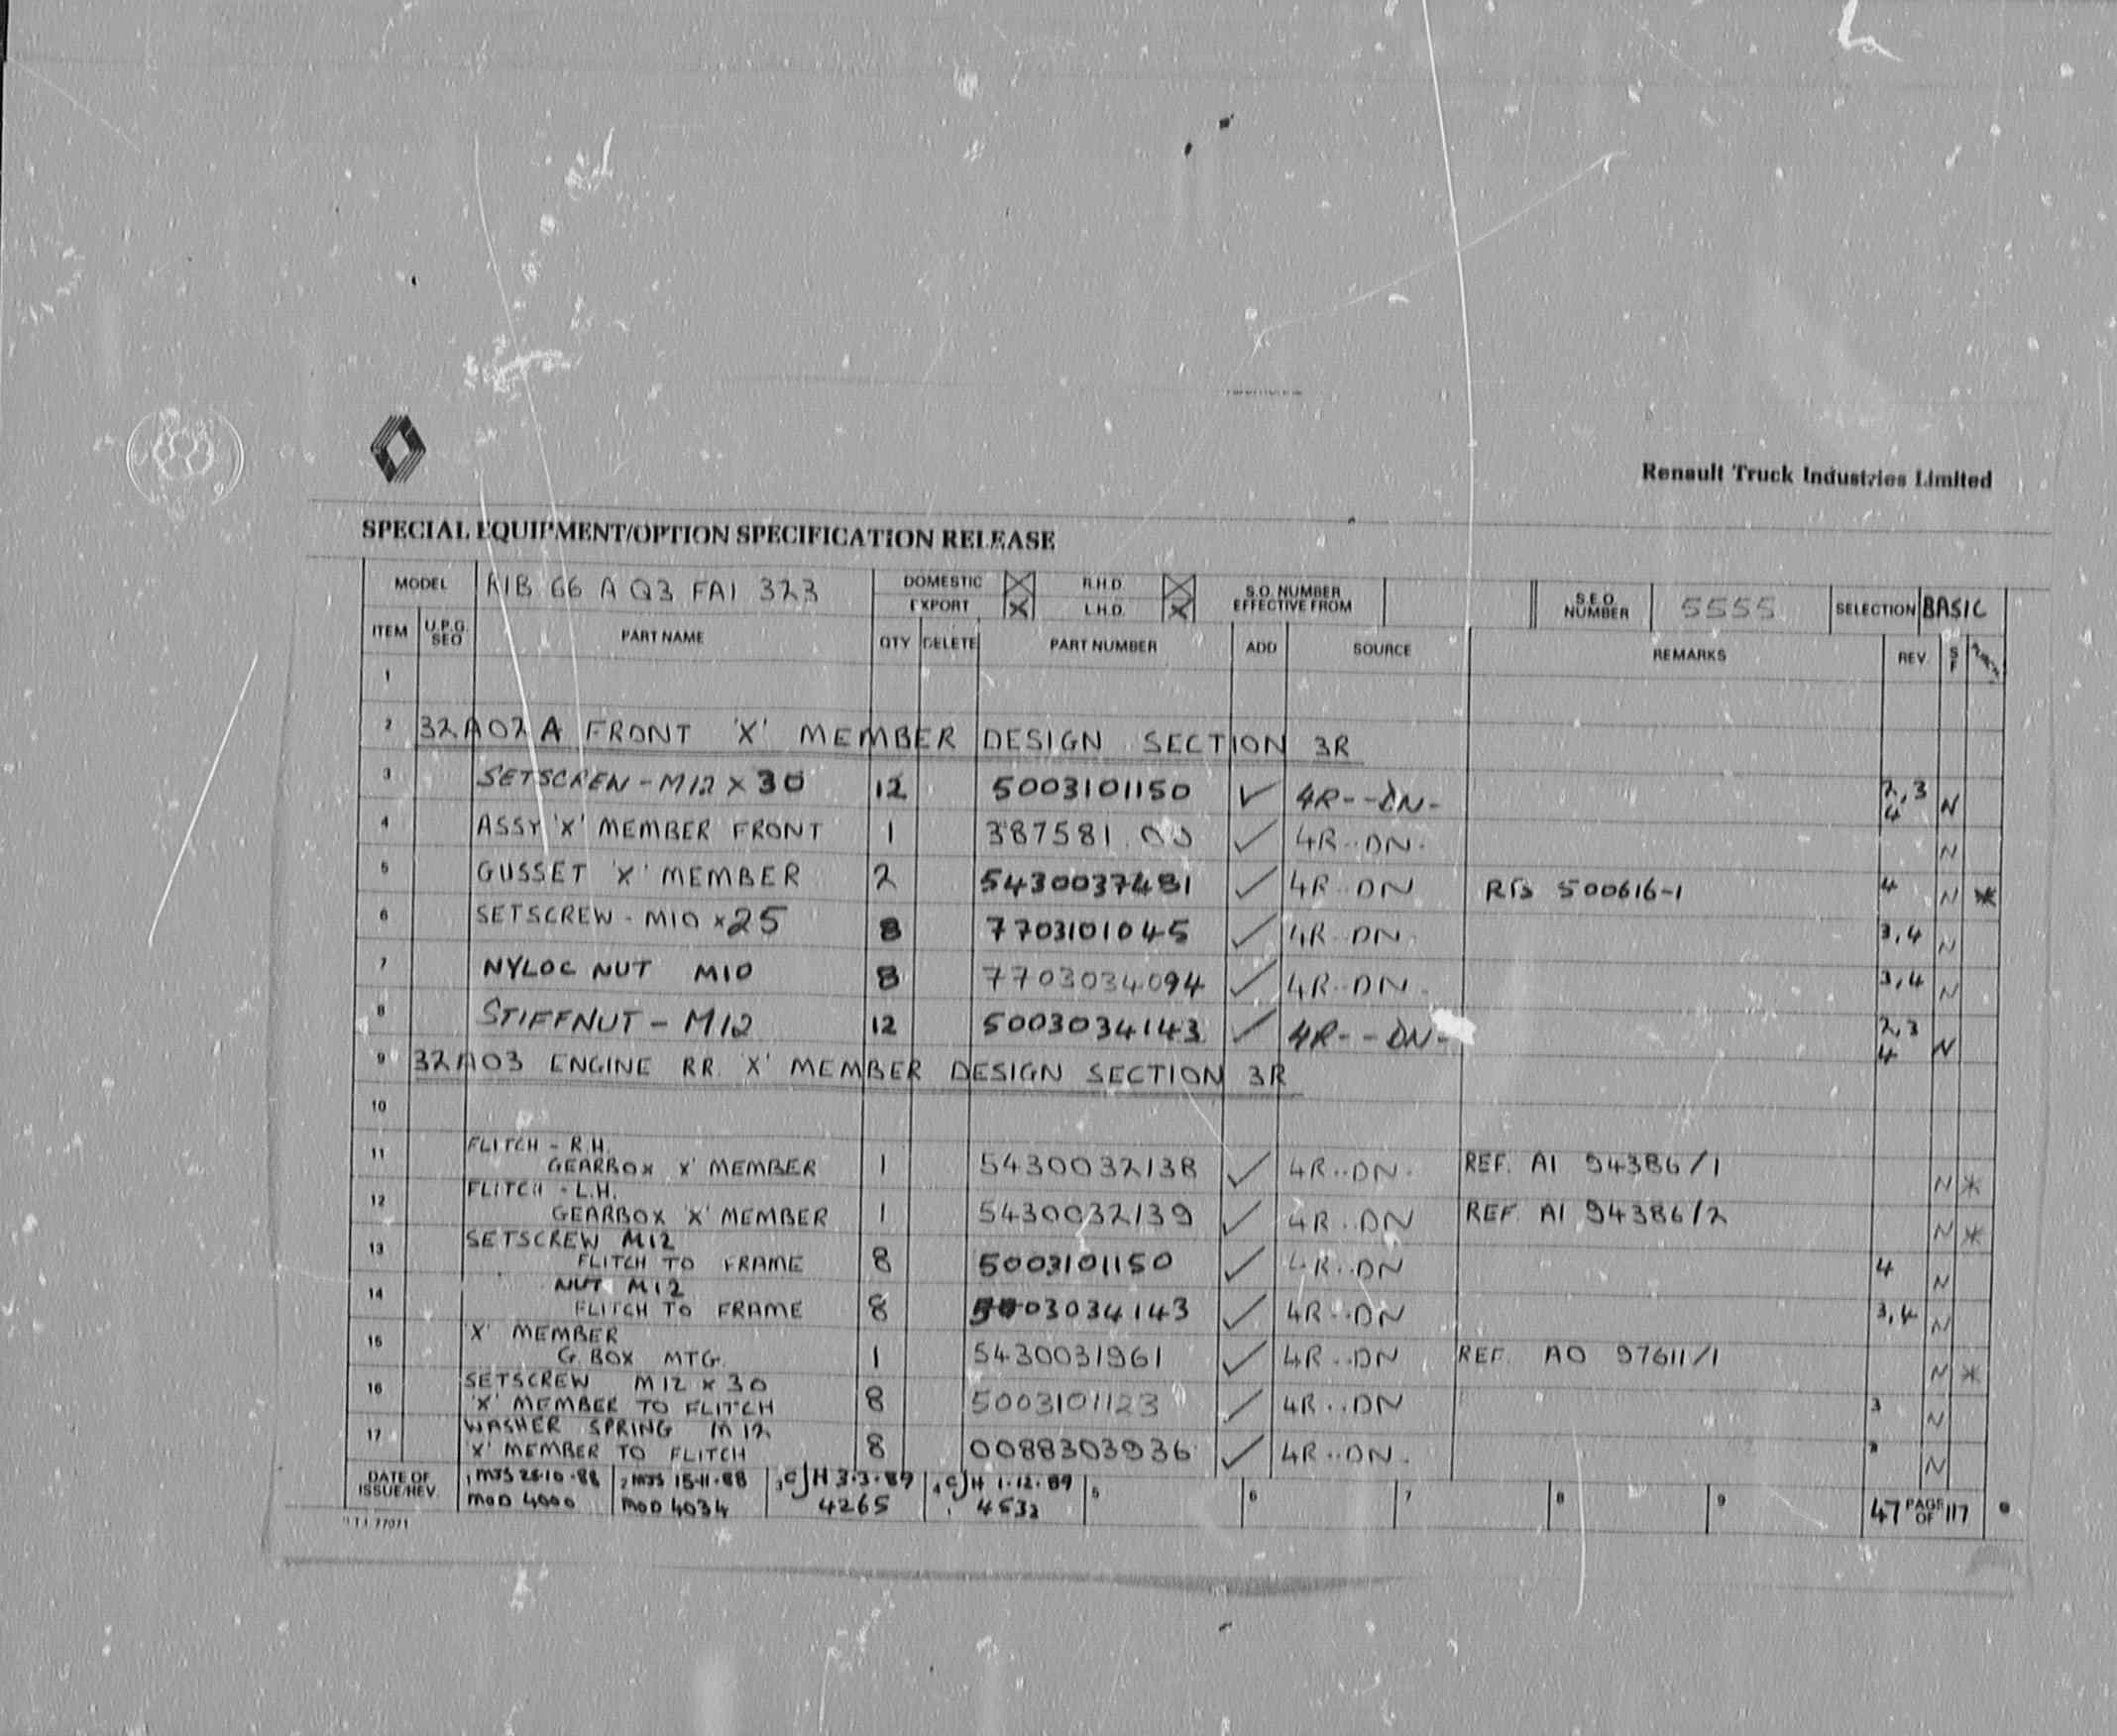 Renault Truck Industries Limited
SPECIAL EQUIPMENT/OPTION SPECIFICATION RELEASE
MODEL A1B 66 A Q3 FA1 323 DOMESTIC X R.H.D. X S.O. NUMBER EFFECTIVE FROM S.E.O. NUMBER 5555 SELECTION BASIC
EXPORT X L.H.D. X
ITEM U.P.G. SEQ PART NAME QTY DELETE PART NUMBER ADD SOURCE REMARKS REV S F
1
2 32A02A FRONT 'X' MEMBER DESIGN SECTION 3R
3 SETSCREW - M12 X 30 12 5003101150 ✓ 4R--DN- 2,3 4 N
4 ASSY 'X' MEMBER FRONT 1 387581 00 ✓ 4R..DN. N
5 GUSSET 'X' MEMBER 2 5430037481 ✓ 4R..DN RB 500616-1 4 N *
6 SETSCREW - M10 x 25 8 7703101045 ✓ 4R..DN. 3,4 N
7 NYLOC NUT M10 8 7703034094 ✓ 4R..DN. 3,4 N
8 STIFFNUT - M12 12 5003034143 ✓ 4R---DN- 2,3 4 N
9 32A03 ENGINE RR. 'X' MEMBER DESIGN SECTION 3R
10
11 FLITCH - R.H.
GEARBOX 'X' MEMBER 1 5430032138 ✓ 4R..DN. REF. A1 94386/1 N *
12 FLITCH - L.H.
GEARBOX 'X' MEMBER 1 5430032139 ✓ 4R..DN REF. A1 94386/2 N *
13 SETSCREW M12
FLITCH TO FRAME 8 5003101150 ✓ 4R..DN 4 N
14 NUT M12
FLITCH TO FRAME 8 5003034143 ✓ 4R..DN 3,4 N
15 'X' MEMBER
G.BOX MTG. 1 5430031961 ✓ 4R..DN REF. A0 97611/1 N *
16 SETSCREW M12 x 30
'X' MEMBER TO FLITCH 8 5003101123 ✓ 4R..DN 3 N
17 WASHER SPRING M12
'X' MEMBER TO FLITCH 8 0088303936 ✓ 4R..DN. N
DATE OF ISSUE/REV. 1 MJS 25·10·88 2 MJS 15·11·88 3 CJH 3·3·89 4 CJH 1·12·89 5 6 7 8 9 47 PAGE OF 117
MOD 4000 MOD 4034 4265 4532
77071